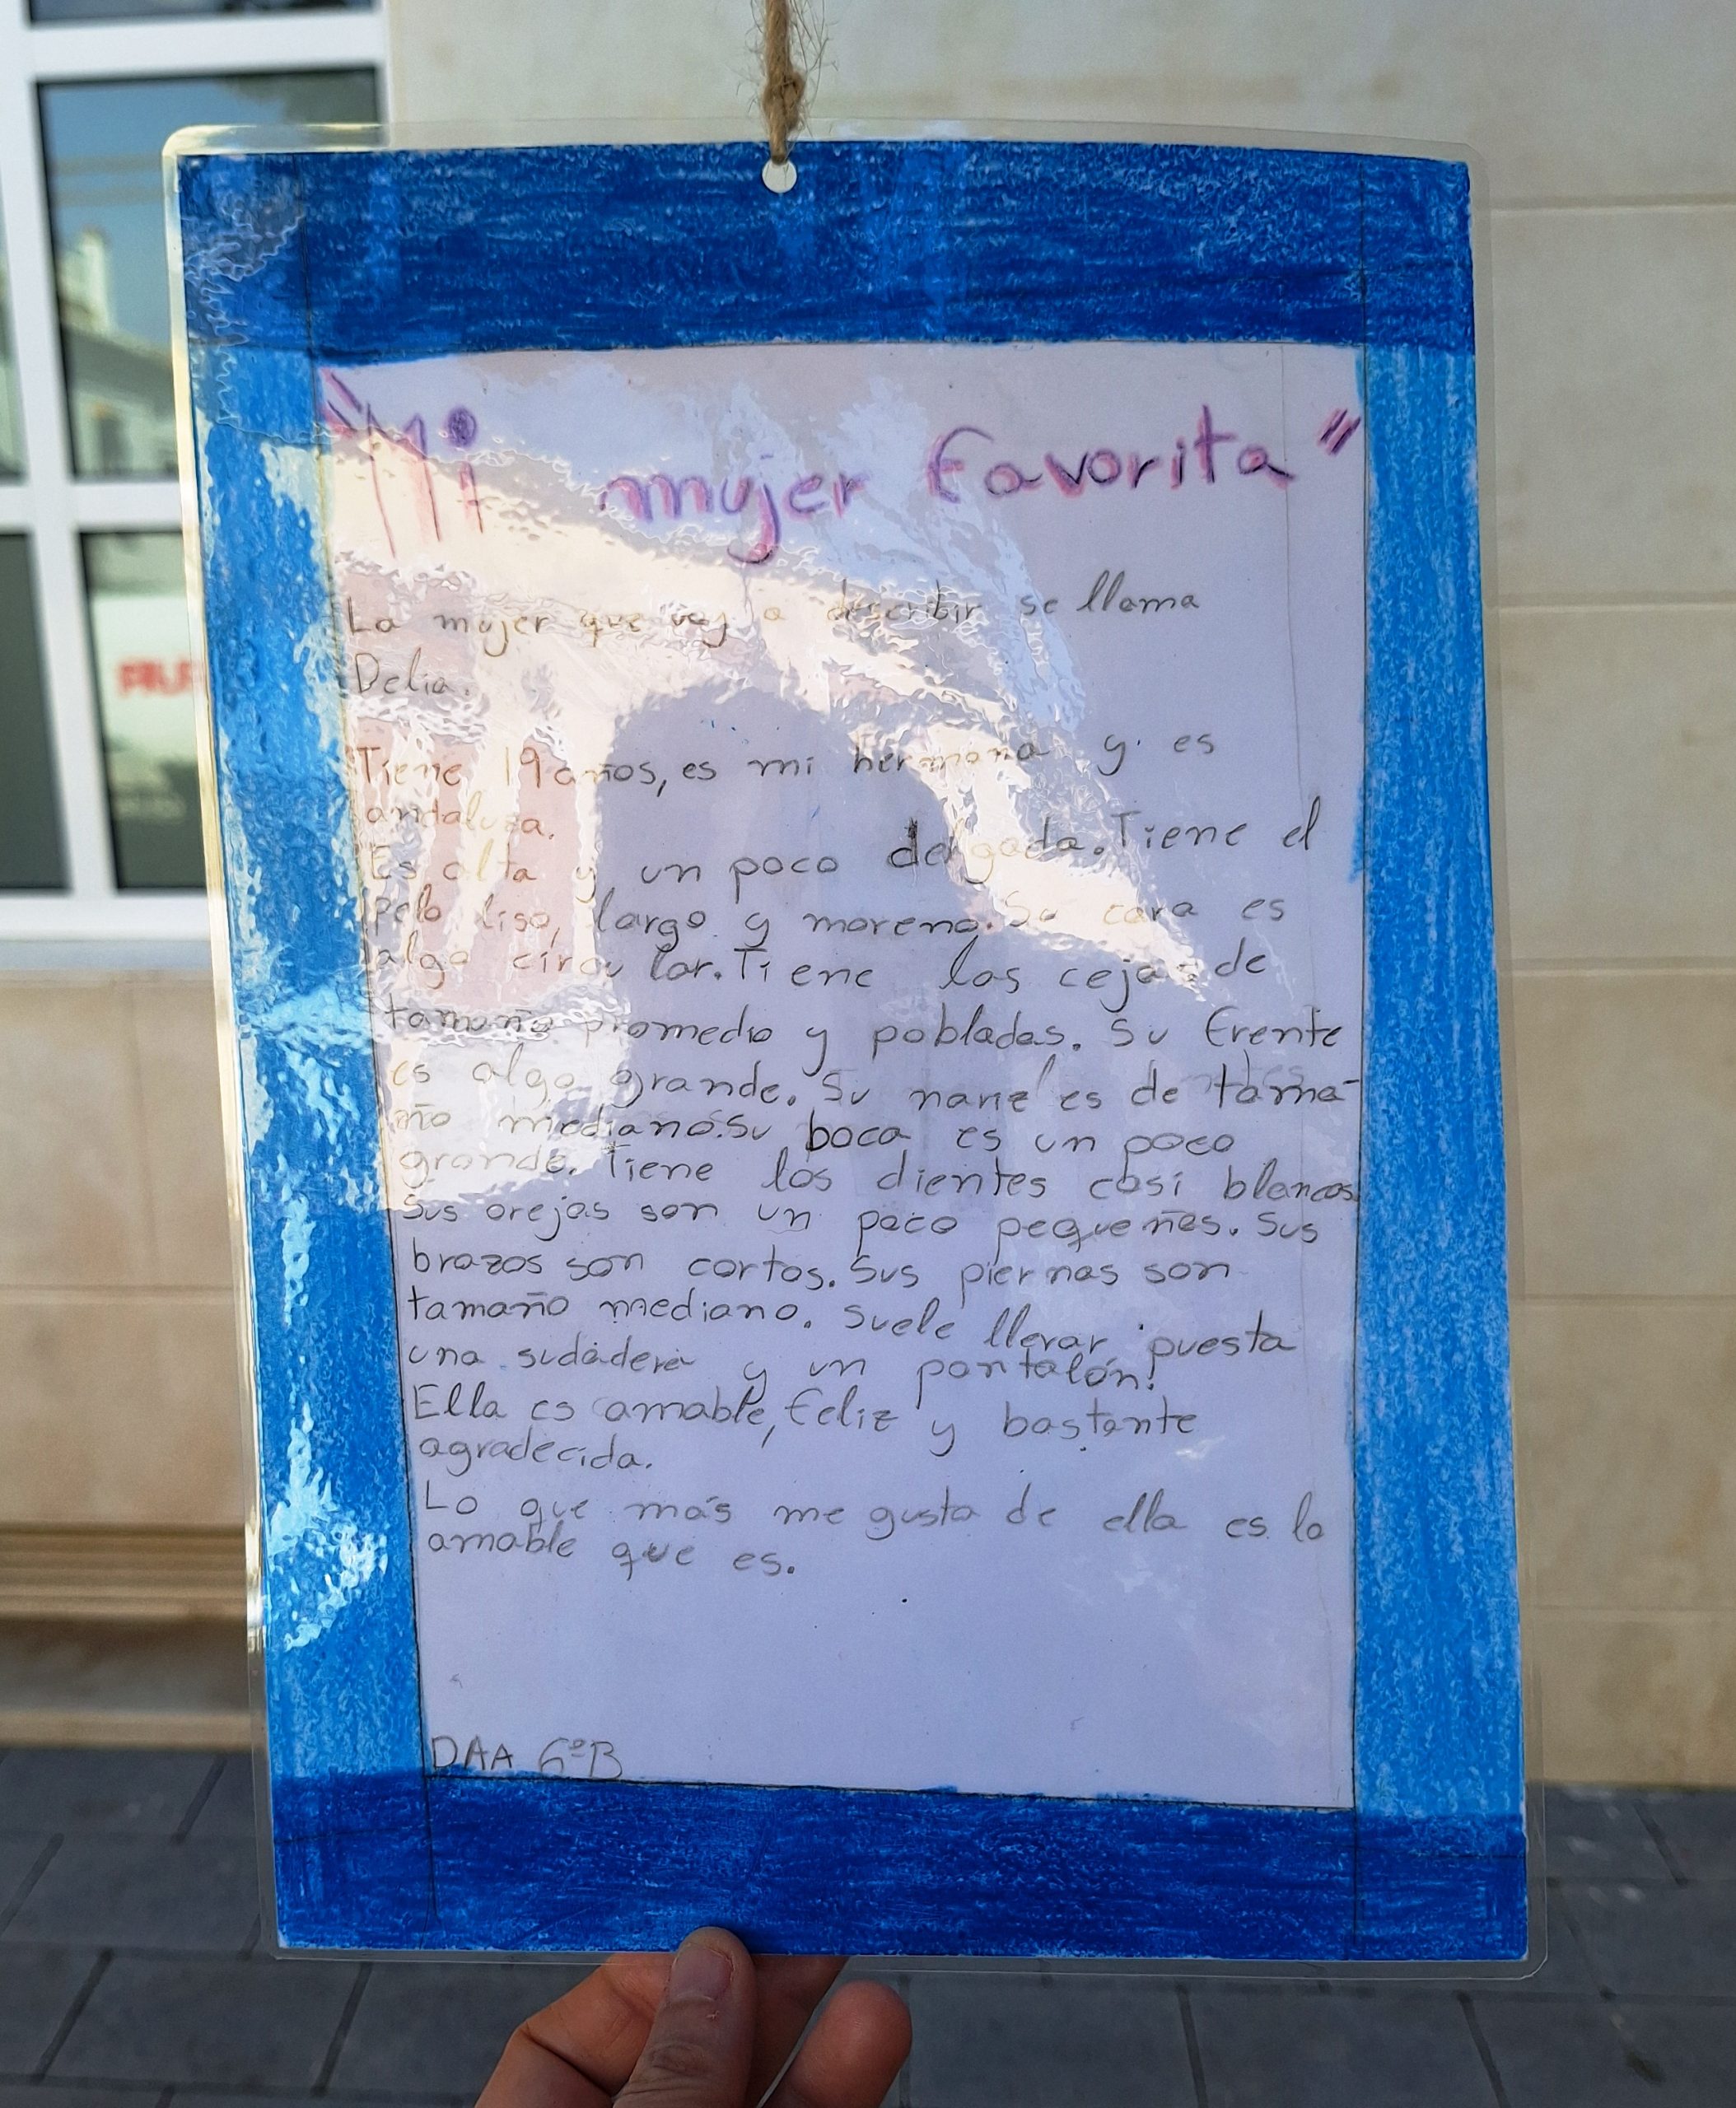 "Mi mujer favorita"
La mujer que voy a describir se llama
Delia.
Tiene 19 años, es mi hermana y es
andaluza.
Es alta y un poco delgada. Tiene el
pelo liso, largo y moreno. Su cara es
algo circular. Tiene las cejas de
tamaño promedio y pobladas. Su frente
es algo grande. Su nariz es de tama-
ño mediano. Su boca es un poco
grande. Tiene los dientes casi blancos.
Sus orejas son un poco pequeñas. Sus
brazos son cortos. Sus piernas son
tamaño mediano. Suele llevar puesta
una sudadera y un pantalón.
Ella es amable, feliz y bastante
agradecida.
Lo que más me gusta de ella es lo
amable que es.
DAA 6ºB